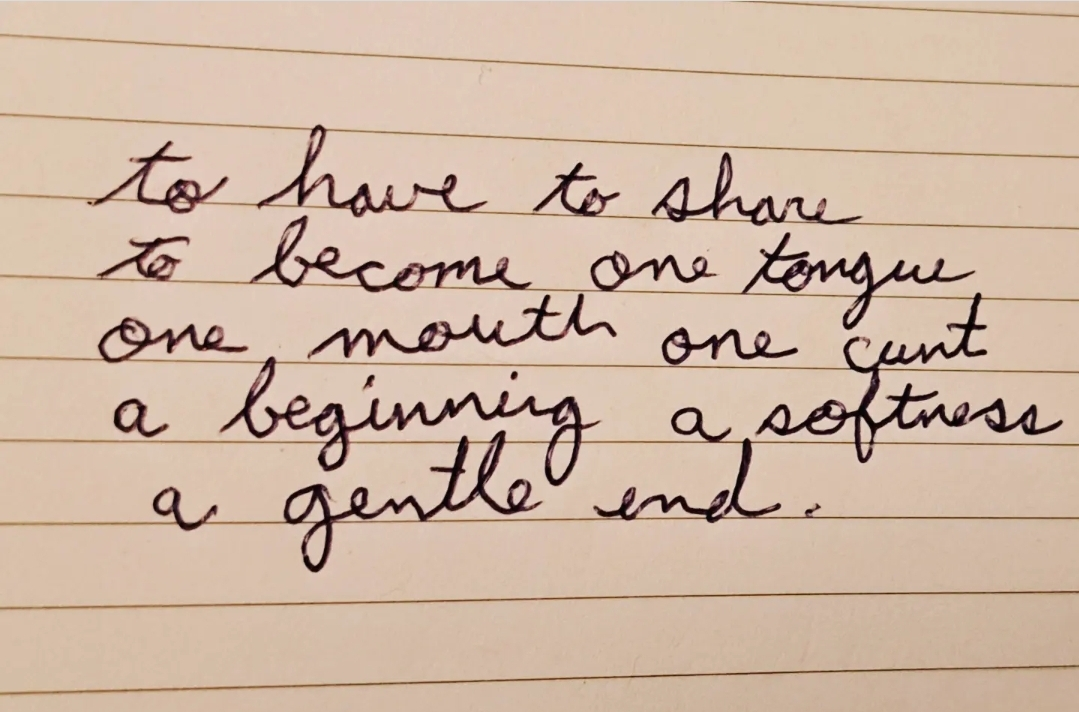 to have to share
to become one tongue
one mouth one cunt
a beginning a softness
a gentle end.